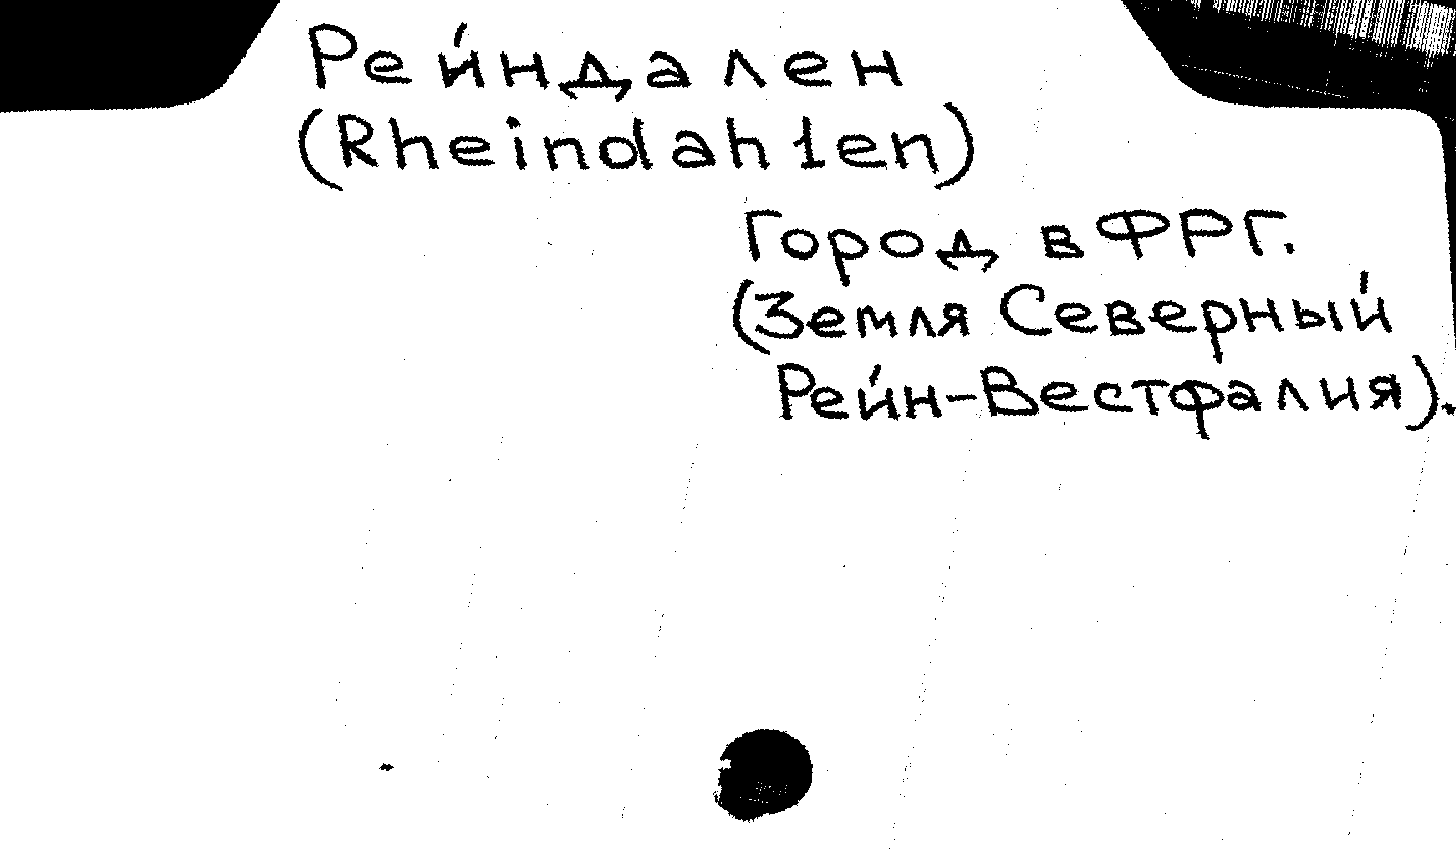 Рейндален
(Rheindahlen)
Город в ФРГ.
(Земля Северный
Рейн-Вестфалия).